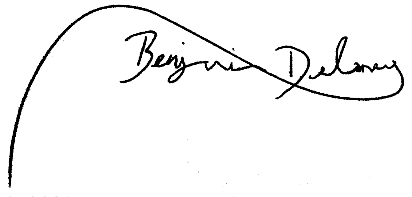 Benjamin Delaney